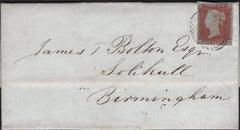 James T Bolton Esqr
Solihull
near
Birmingham